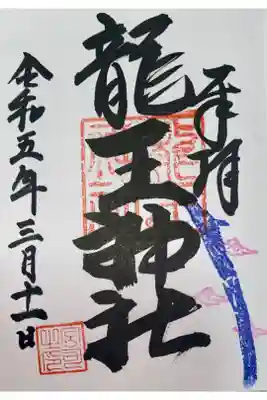 奉拝
龍王神社
令和五年三月十一日